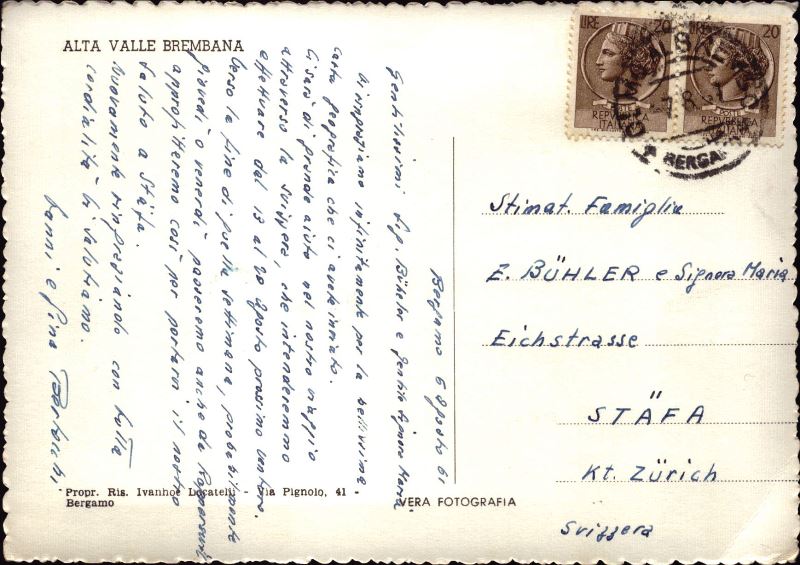 ALTA VALLE BREMBANA
LIRE 20
20
REPVBBLICA
ITALIANA
REPVBBLICA
ITALIANA
BERGAMO
Bergamo 6 agosto 61
Gentilissimi Sig. Bühler e gentile Signora Maria
Vi ringraziamo infinitamente per la bellissima
carta geografica che ci avete inviato.
Ci sarà di grande aiuto nel nostro viaggio
attraverso la Svizzera, che intenderemmo
effettuare dal 13 al 20 agosto prossimo venturo.
Verso la fine di quella settimana, probabilmente
giovedì o venerdì passeremo anche da
approfitteremo così per portarvi il nostro
saluto a Stäfa.
Nuovamente ringraziando con tutta
cordialità Vi salutiamo.
Gianni e Pina
Stimat. Famiglia
E. BÜHLER e Signora Maria
Eichstrasse
STÄFA
Kt. Zürich
Svizzera
Propr. Ris. Ivanhoe Locatelli - Via Pignolo, 41 -
Bergamo
VERA FOTOGRAFIA